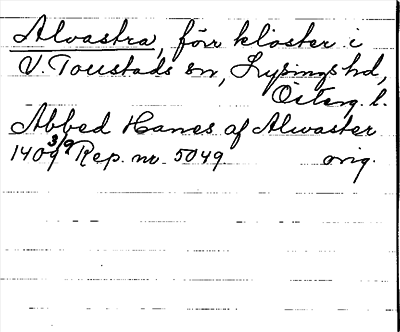 Alvastra, förr kloster i
V. Toustads sn, Lysings hd,
Österg. l.
Abbed Hanes af Alwaster
1409 3/9 Rep. nr. 5049 orig.